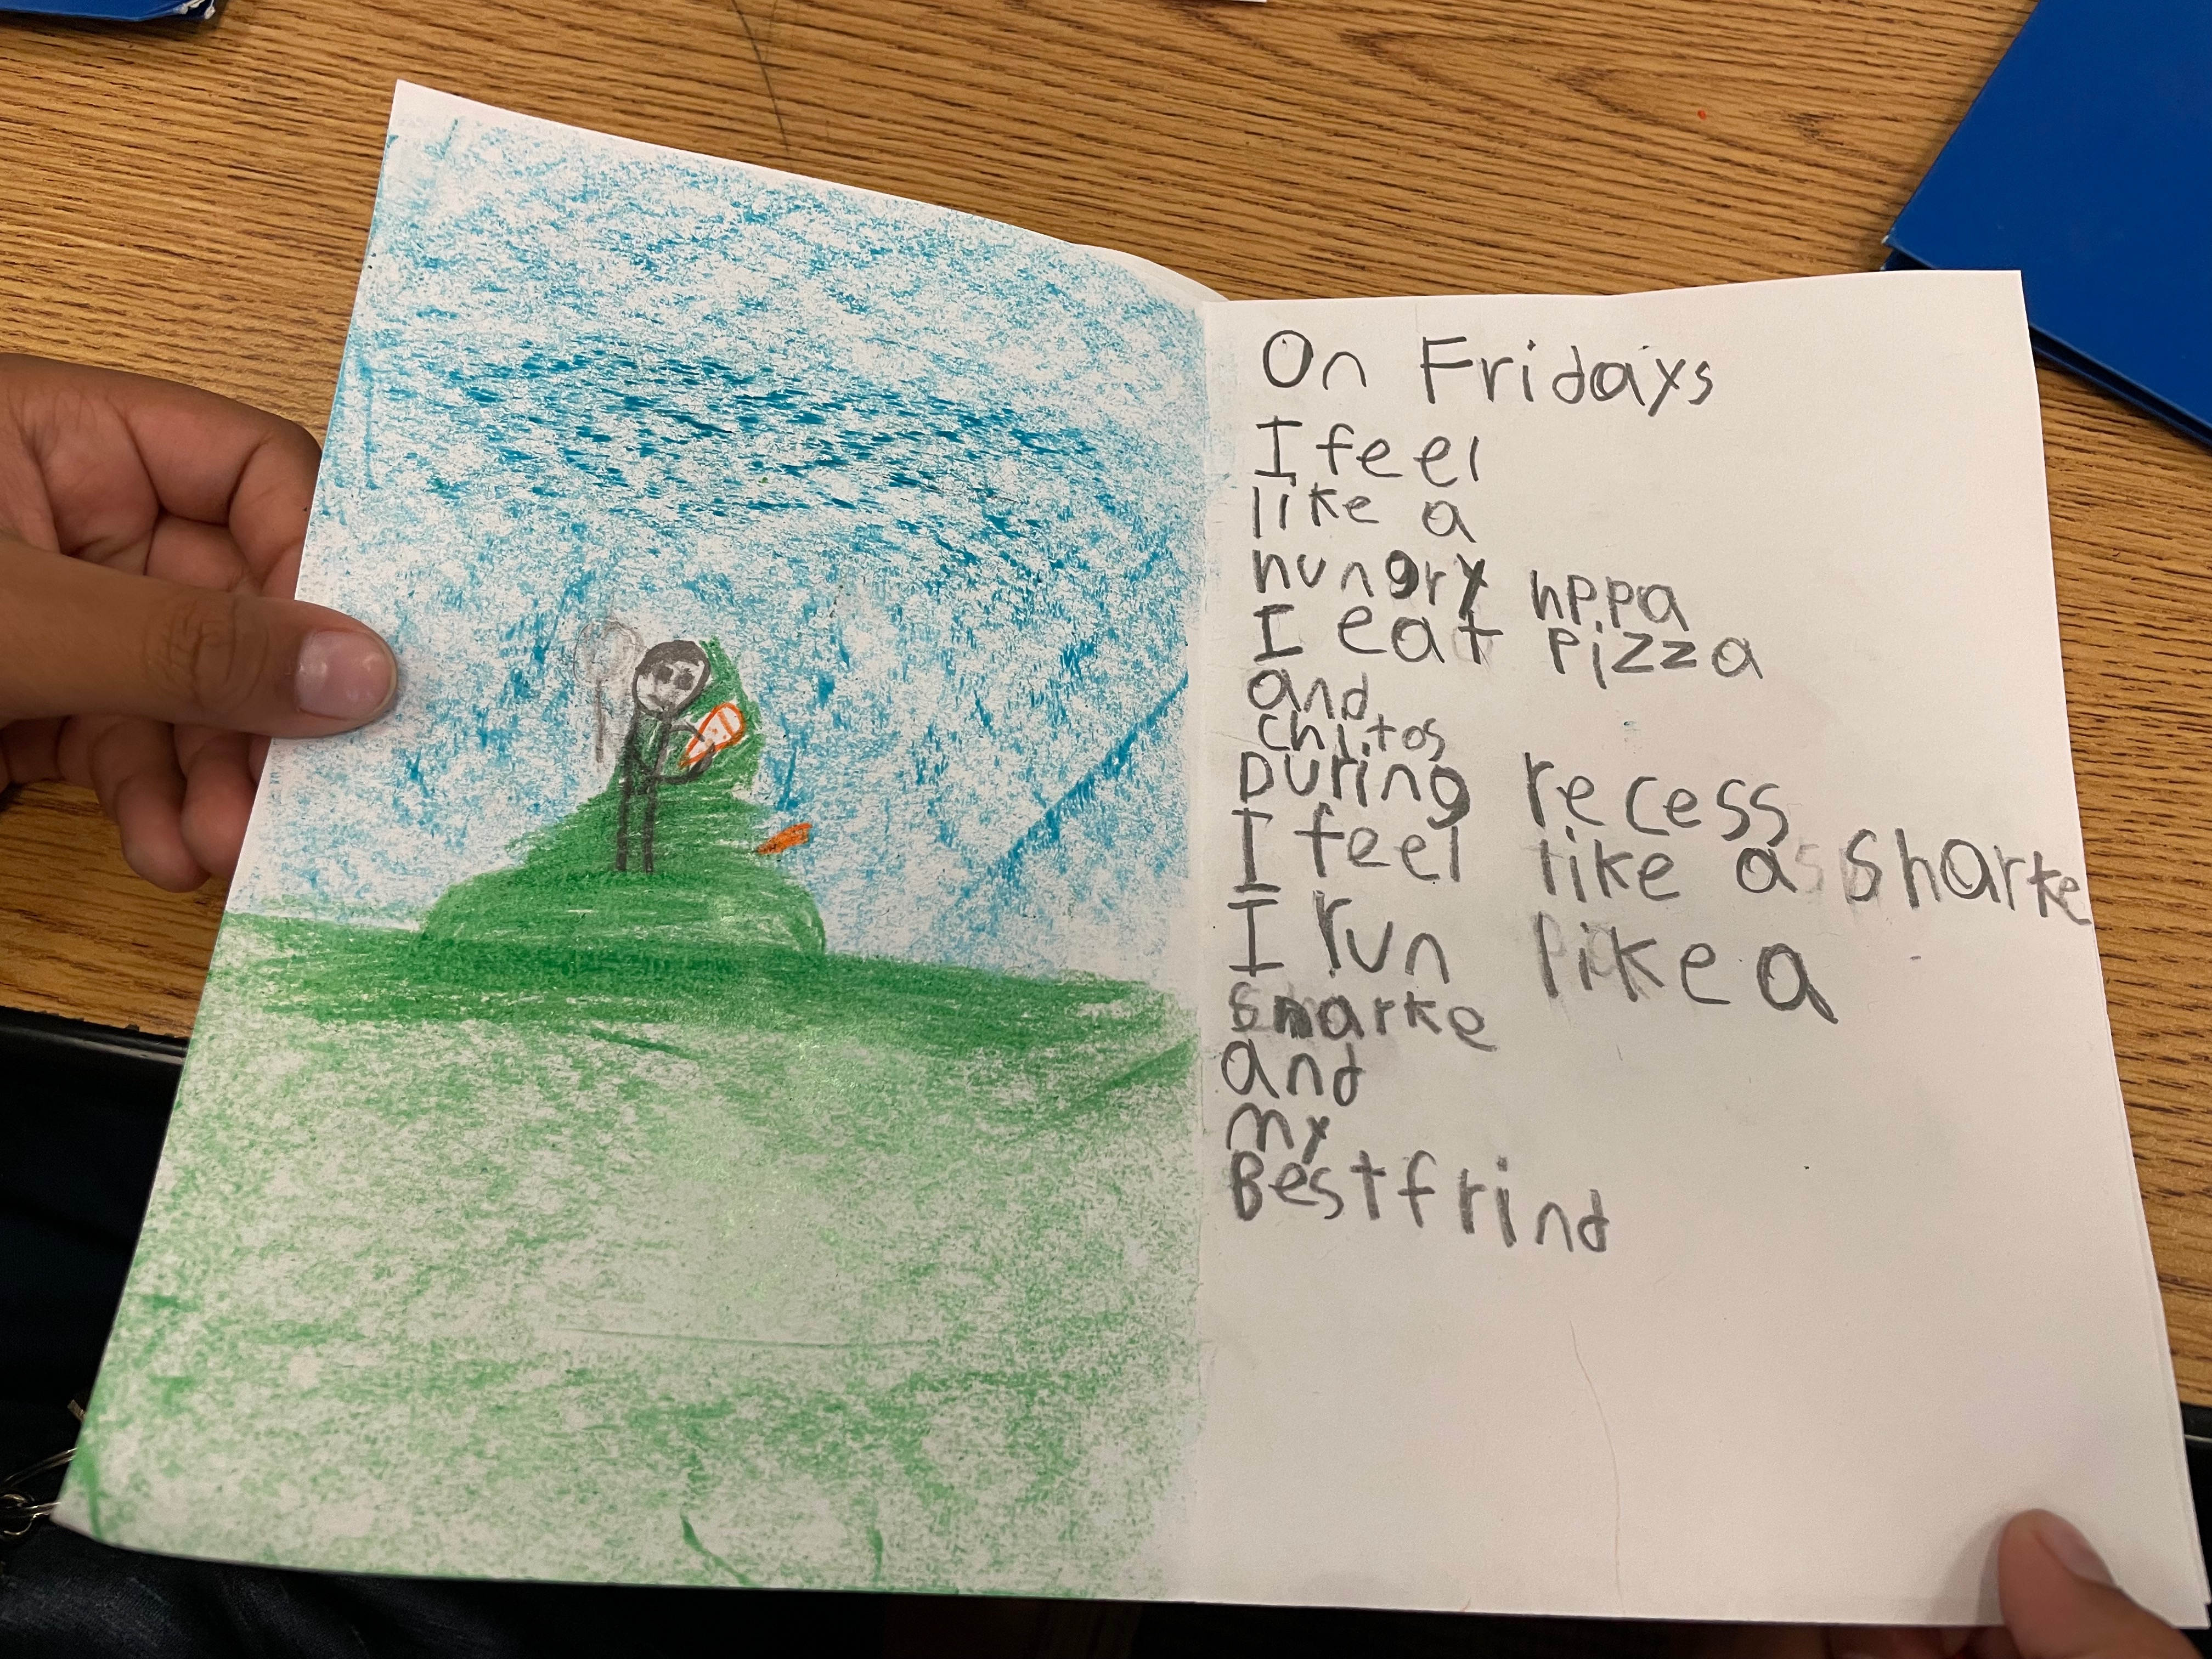 On Fridays
I feel
like a
hungry hppa
I eat pizza
and
chitos
During recess
I feel like a sharke
I run like a
sharke
and
my
Bestfrind